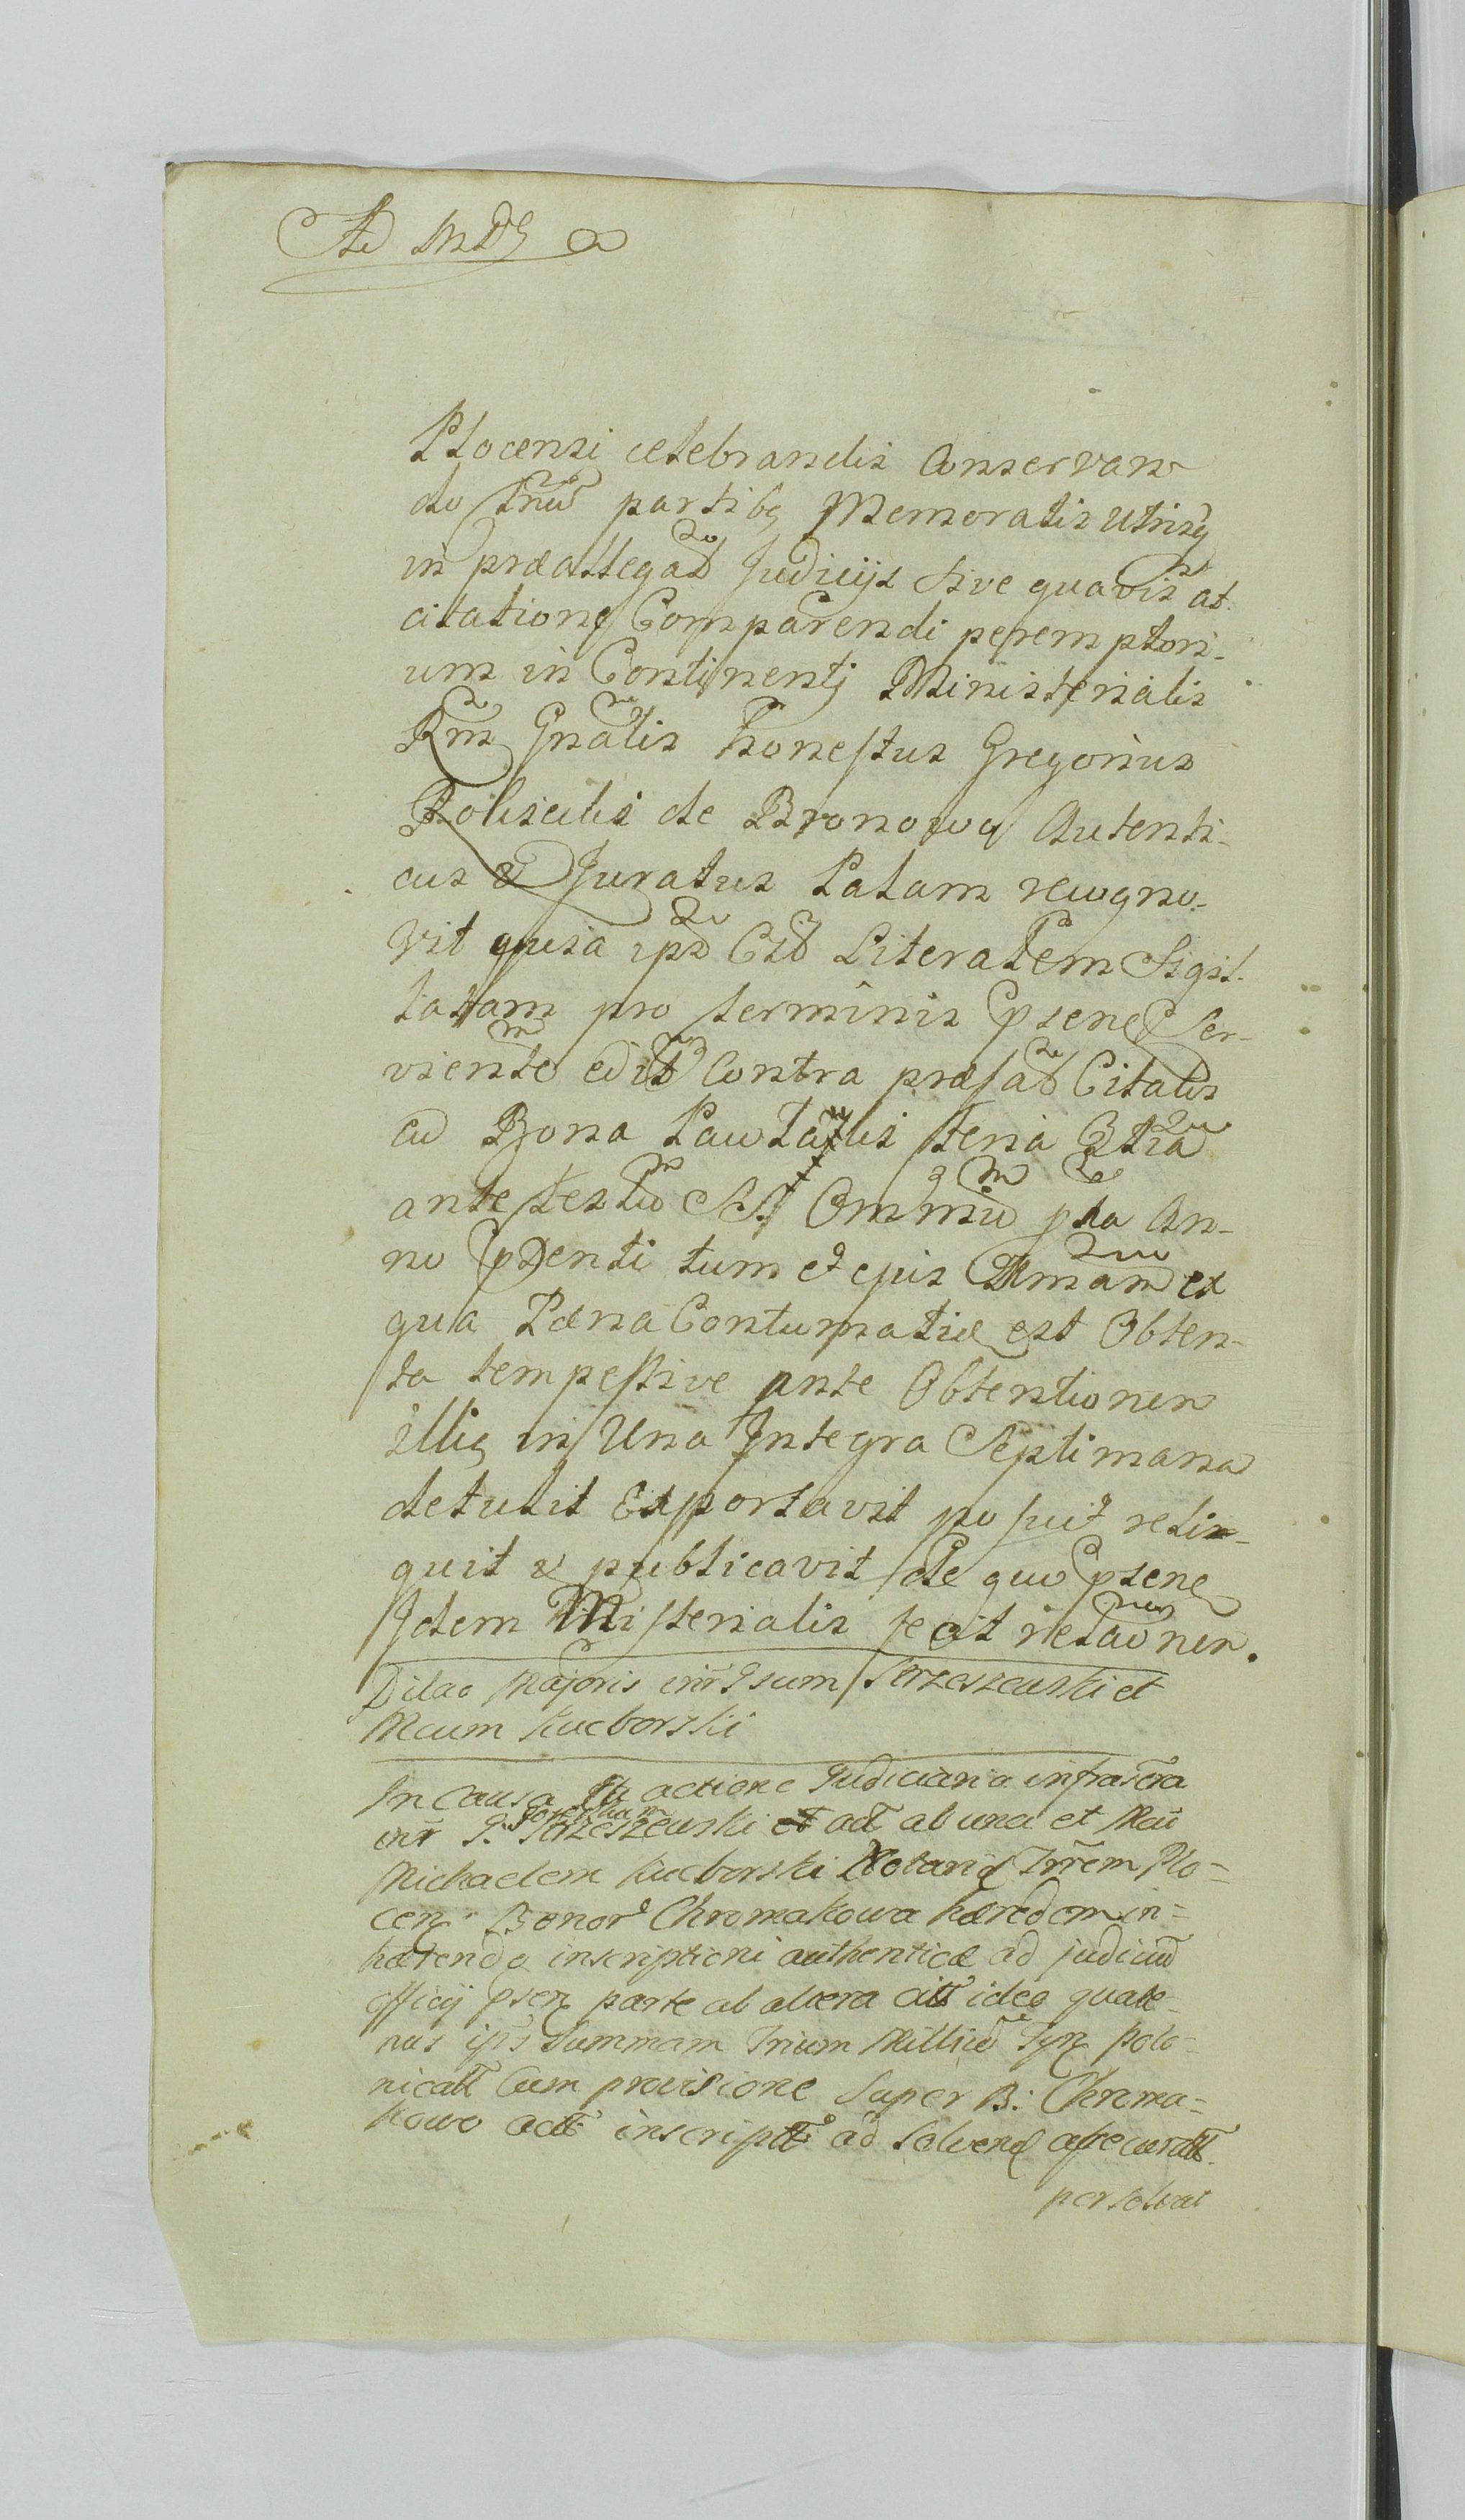 Ad MDG
Plocensi celebrandis Conservan
do Tnu partibq Memoratis Utrisq
in præallegad Judicijs sive quavis at
citatione Comparendi peremptori-
um in Continenti Ministerialis
Rni Gnalis honestus Gregorius
de Bronowo Autenti-
cus & Juratus Palam recogno-
vit quia ips Citt Literalem Sigil-
latam pro terminis psene Ser-
viente edit Contra præfat Citatis
ad Bona Pawlawki feria 3tia
ante festu SSt Omniu pta An-
no pdenti tum et ejus Rmam ex
qua Pæna Contumatiæ est Obten-
ta tempestive ante Obtentionem
illiq in Una Integra Septimana
detulit Exportavit posuit relin-
quit & publicavit de quo psene
Idem Misterialis fecit relaonem.
Dilao Majoris intr Gsum Strzeszewski et
Mcum Kucborski
In Causa et actione Judiciaria infrascra
intr G. Strzeszewski act ab una et Mcu
Michaelem Kucborski Notariu Trrem Plo=
cen Bonor Chromakowa hæredem in=
hærendo inscriptioni authenticæ ad judiciu
officij psen parte ab altera citt ideo quate=
nus ips Summam Trium Milliu Flor polo=
nicall Cum provisione Super B: Chroma=
kowo actt inscriptt ad Solvend assecuratt
persolvat